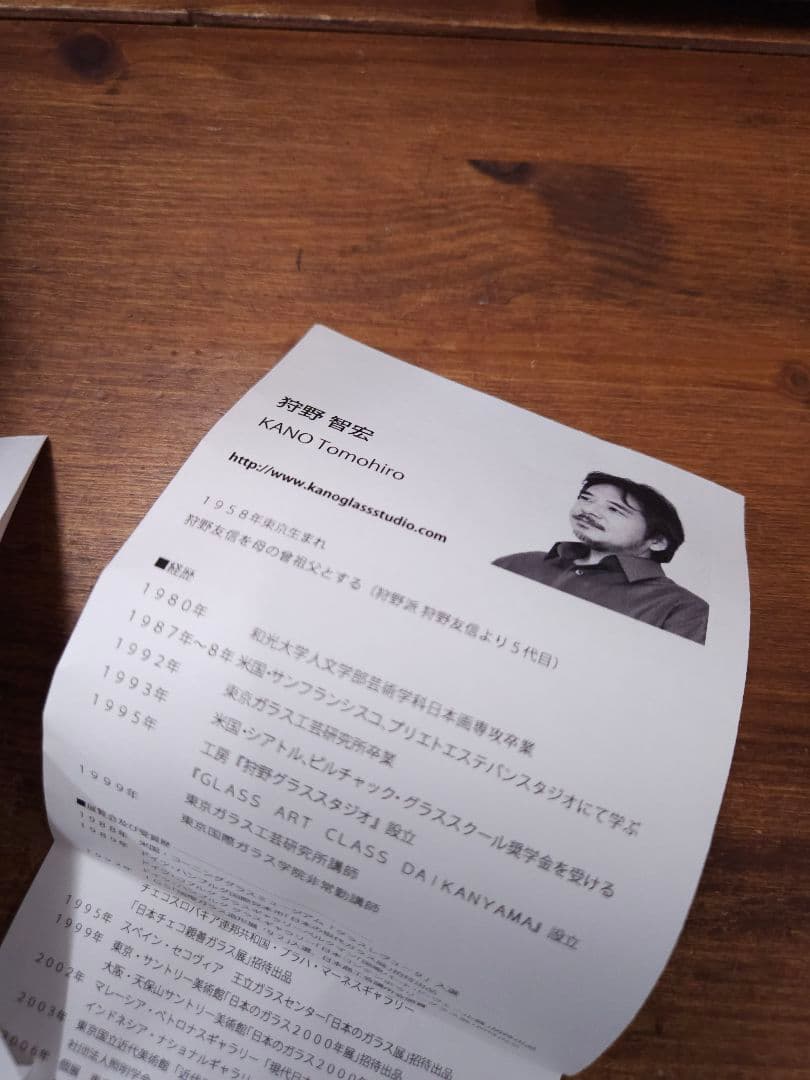 狩野 智宏
KANO Tomohiro
http://www.kanoglassstudio.com
1958年東京生まれ
狩野友信を母の曾祖父とする（狩野派 狩野友信より5代目）
■経歴
1980年 和光大学人文学部芸術学科日本画専攻卒業
1987年〜8年 米国・サンフランシスコ、プリエトエステバンスタジオにて学ぶ
1992年 東京ガラス工芸研究所卒業
1993年 米国・シアトル、ピルチャック・グラススクール奨学金を受ける
1995年 工房『狩野グラススタジオ』設立
『GLASS ART CLASS DAIKANYAMA』設立
東京ガラス工芸研究所講師
1999年 東京国際ガラス学院非常勤講師
■展覧会及び受賞歴
1988年
1989年
チェコスロバキア連邦共和国・プラハ・マーネスギャラリー
「日本チェコ親善ガラス展」招待出品
1995年 スペイン・セコヴィア 王立ガラスセンター「日本のガラス展」招待出品
1999年 東京・サントリー美術館「日本のガラス2000年展」招待出品
大阪・天保山サントリー美術館「日本のガラス2000年
2002年 マレーシア・ペトロナスギャラリー「現代日
インドネシア・ナショナルギャラリ
2003年 東京国立近代美術館「近代
社団法人照明学会
2006年 個展